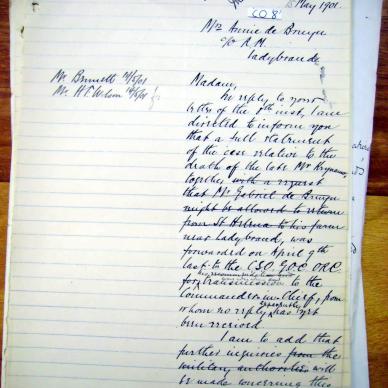 8 May 1901.
CO 8
Mrs Annie de Bruyn
c/o R.M.
Ladybrande
Mr Brunett 14/5/01
Mr H.F. Wilson 14/5/01
Madam,
In reply to your
letter of the 7th inst, I am
directed to inform you
that a full statement
of the case relative to the
death of the late Mr
together with a request
that Mr Gabriel de Bruyn
might be allowed to return
from St Helena to his farm
near Ladybrand, was
forwarded on April 9th
last to the C.S.O. G.O.C. O.R.C.
for transmission to the
Commander in Chief, from
whom no reply has yet
been received.
I am to add that
further inquiries from the
military authorities will
be made concerning this